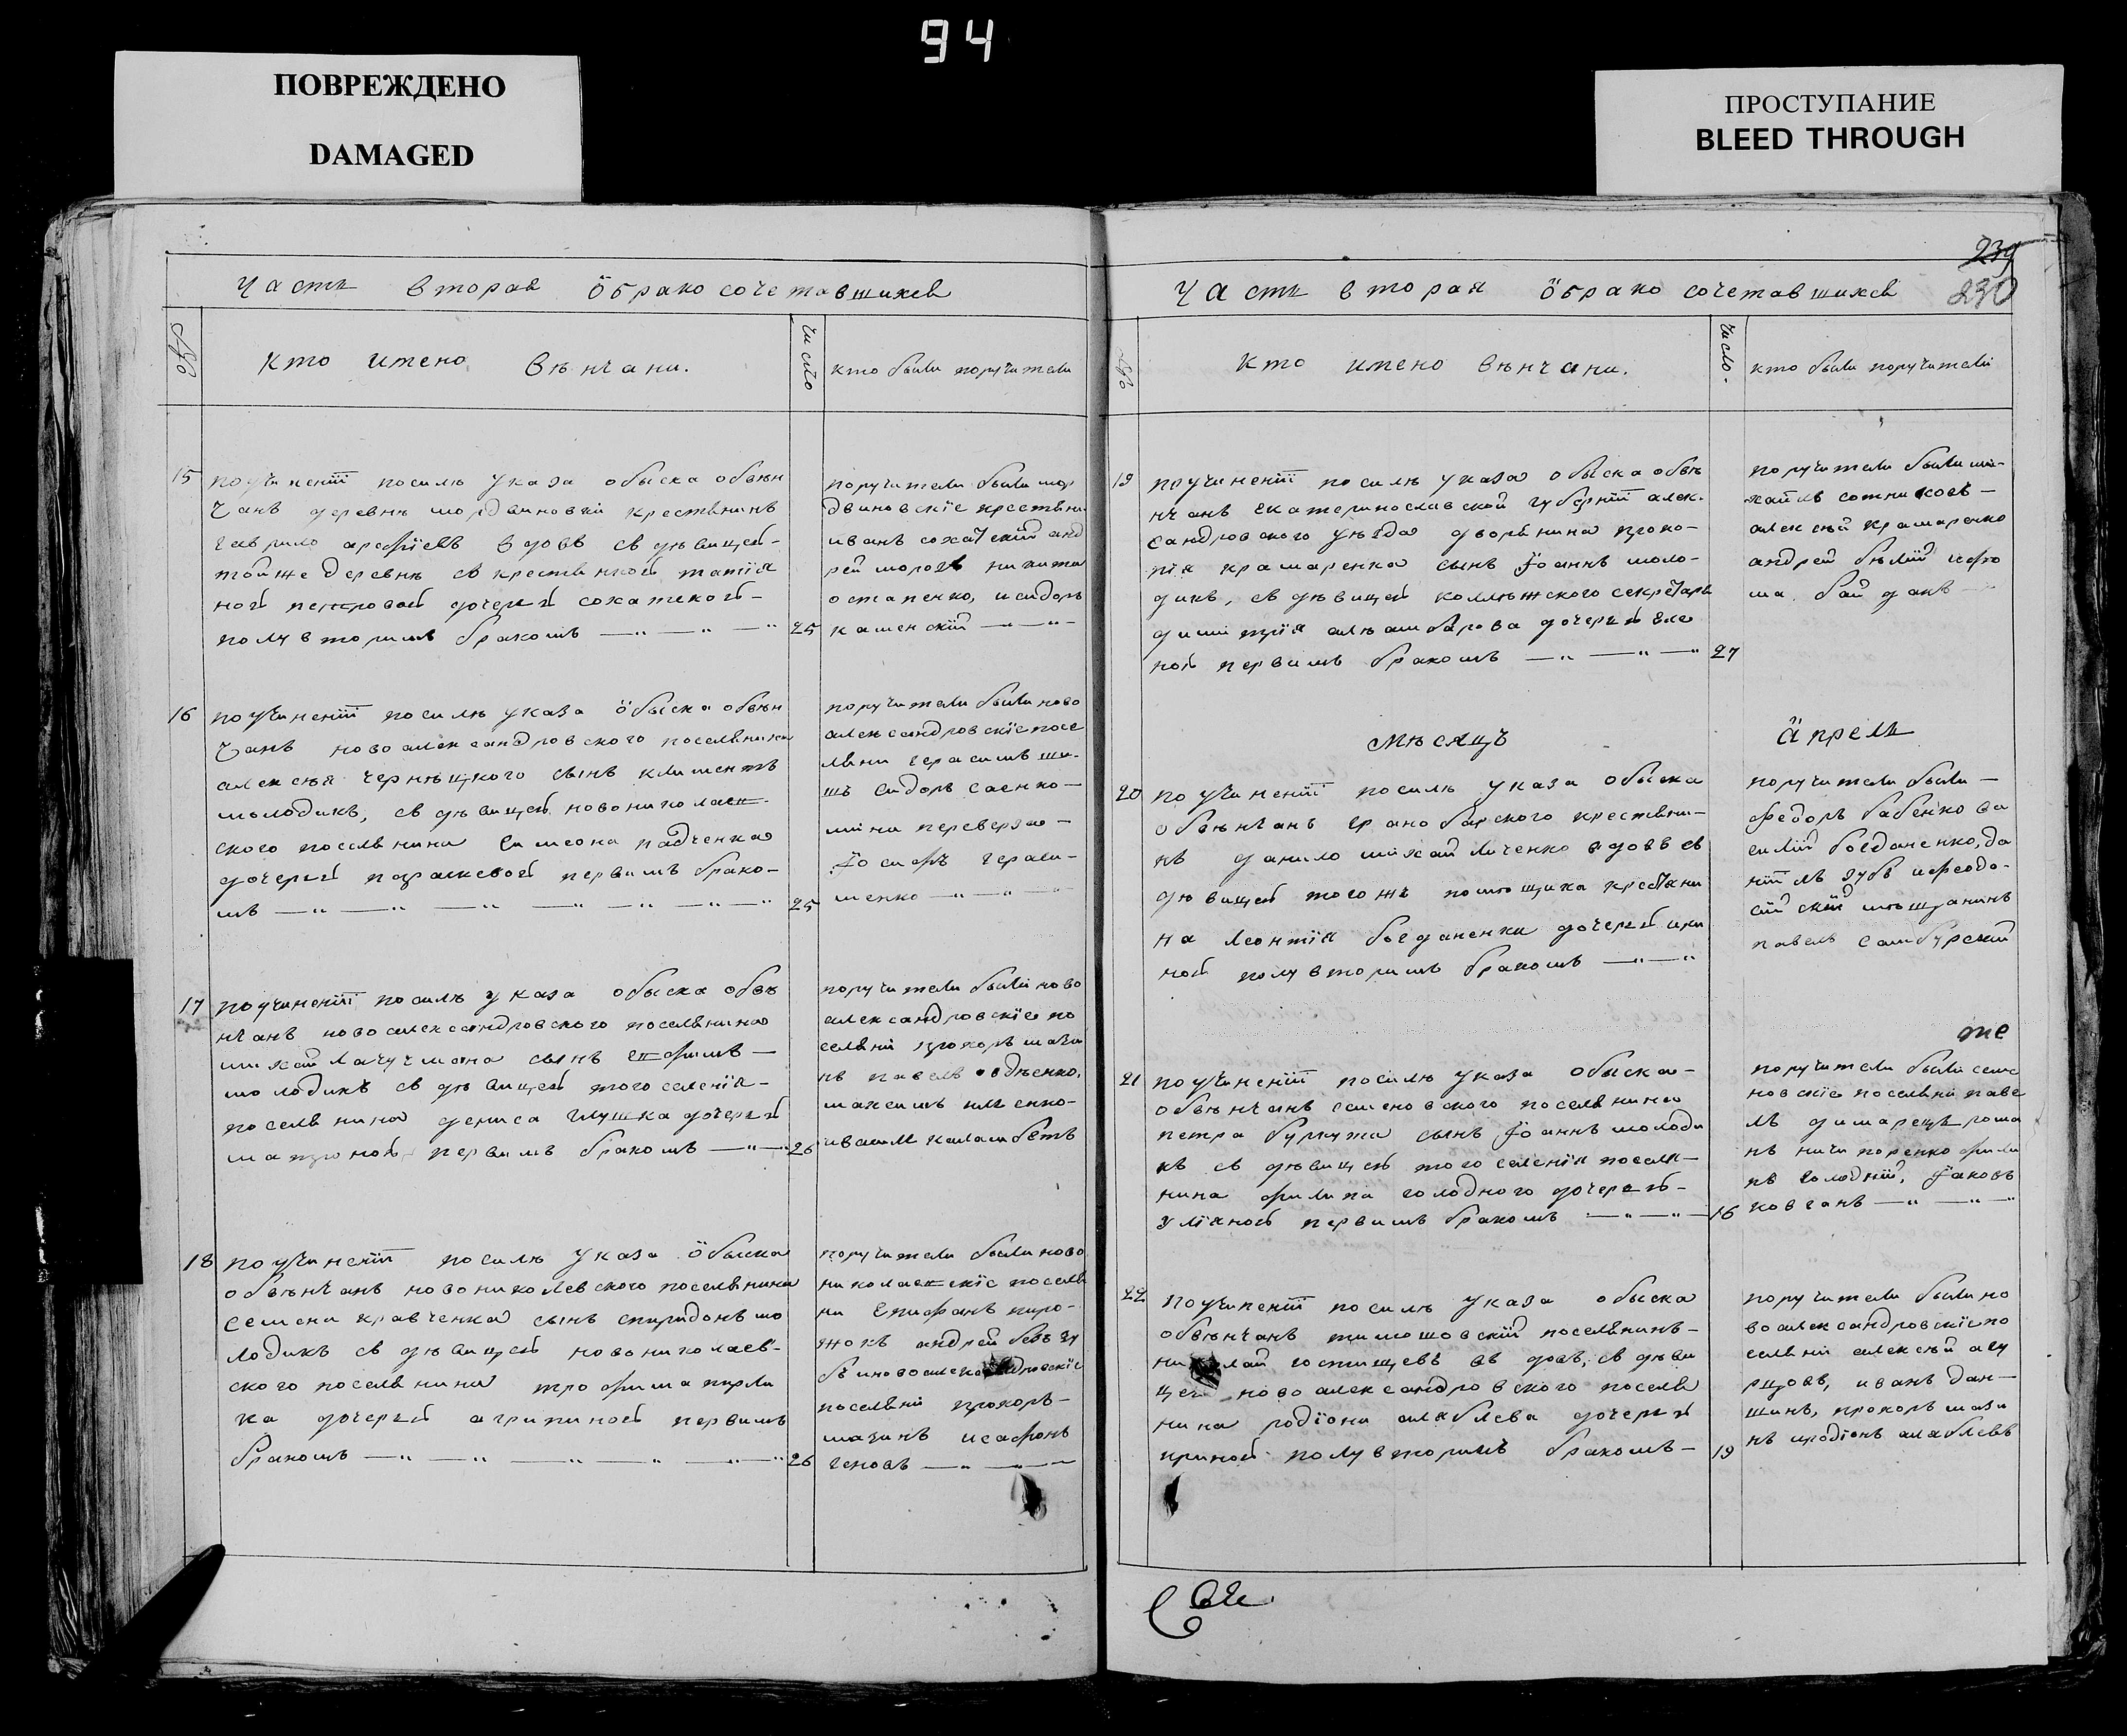 94
ПОВРЕЖДЕНО
DAMAGED
ПРОСТУПАНИЕ
BLEED THROUGH
Часть вторая о бракосочетавшихся
№
кто имено вѣнчани.
число
кто были поручители
15
поучинениї по силѣ указа обыска обвѣн
чанъ деревнѣ мордвиновки крестянинъ
гаврило арефїевъ вдовъ съ дѣвицей
той же деревнѣ крестянкой татїя
ной петровой дочерей сохатской
полувторимъ бракомъ
25
поручители были мор
двиновскїе крестяни
иванъ сохатский анд
рей морозъ никита
остапенко, исидоръ
каменский
16
поучинениї по силѣ указа обыска обвѣн
чанъ новоалександровского поселянина
алексѣя чернѣцкого сынъ климентъ
молодикъ, съ дѣвицей новониколаев
ского поселянина симеона падченка
дочерей параскевой первимъ брако
мъ
25
поручители были ново
александровскїе посе
ляни герасимъ ши
шъ сидоръ саенко
мина переверза
їосифъ гераси
менко
17
поучинениї по силѣ указа обыска обвѣ
нчанъ новоалександровского поселянина
михайла чучмана сынъ ефимъ
молодикъ съ дѣвицей того селенїя
поселянина дениса глушка дочерей
матроной первимъ бракомъ
26
поручители были ново
александровскїе по
селяні прохоръ мази
нъ павелъ овдѣенко,
максимъ илченко
18
поучинениї по силѣ указа обыска
обвѣнчанъ новониколевского поселянина
семена кравченка сынъ спиридонъ мо
лодикъ съ дѣвицей новониколаев
ского поселянина трофима пирли
ка дочерей агрипиной первимъ
бракомъ
26
поручители были ново
николаевскїе поселя
ни епифанъ пиро
жокъ андрей безъ зу
бъ и новоалександровскїе
поселяні прохоръ
мазинъ и сафонъ
геновъ
239
230
Часть вторая о бракосочетавшихся
№
кто имено вѣнчани.
число.
кто были поручители
19
поучинениї по силѣ указа обыска обвѣ
нчанъ екатеринославской губернїї алек
сандровского уѣзда дворянина проко
пїя крамаренка сынъ їоаннъ моло
дикъ, съ дѣвицей коллѣжского секретаря
димитрїя алѣамбарова дочерей еле
ной первимъ бракомъ
27
поручители были ми
хаилъ сотниковъ
алексѣй крамаренко
андрей бѣлий и фо
ма байдакъ
мѣсяцъ апрель
20
поучинениї по силѣ указа обыска
обвѣнчанъ гранобарского крестяни
нъ данило михайличенко вдовъ съ
дѣвицей того жъ помѣщика крестяни
на леонтїя богданенка дочерей ири
ной полувторимъ бракомъ
поручители были
федоръ бабенко ва
силий богданенко, да
нїїлъ зубъ и феодо
сийский мѣщанинъ
павелъ самбурский
те
21
поучинениї по силѣ указа обыска
обвѣнчанъ семеновского поселянина
петра буркута сынъ їоаннъ молоди
къ съ дѣвицей того селенїя поселя
нина филипа голодного дочерей
улїяной первимъ бракомъ
16
поручители были семе
новскїе поселяні паве
лъ димарецъ рома
нъ ничипоренко фили
пъ голодний, їаковъ
ковганъ
22
поучинениї по силѣ указа обыска
обвѣнчанъ тимошовский поселянинъ
николай гостищевъ вдовъ, съ дѣви
цей новоалександровского поселя
нина родїона алябева дочерей
ириной полувторимъ бракомъ
19
поручители были но
воалександровскїе по
селяні алексѣй агу
рцовъ, иванъ дан
шинъ, прохоръ мази
нъ иродїонъ алябевъ